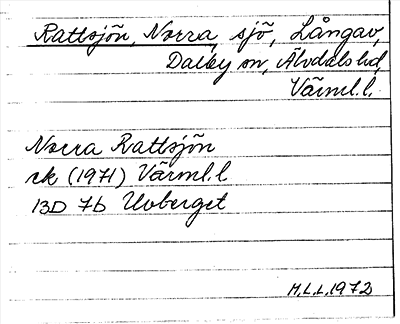 Rattsjön, Norra, sjö, Långav,
Dalby sn, Älvdals hd,
Värml.l.
Norra Rattsjön
rk (1971) Värml.l
13D 7b Uvberget
M.L.L. 1972